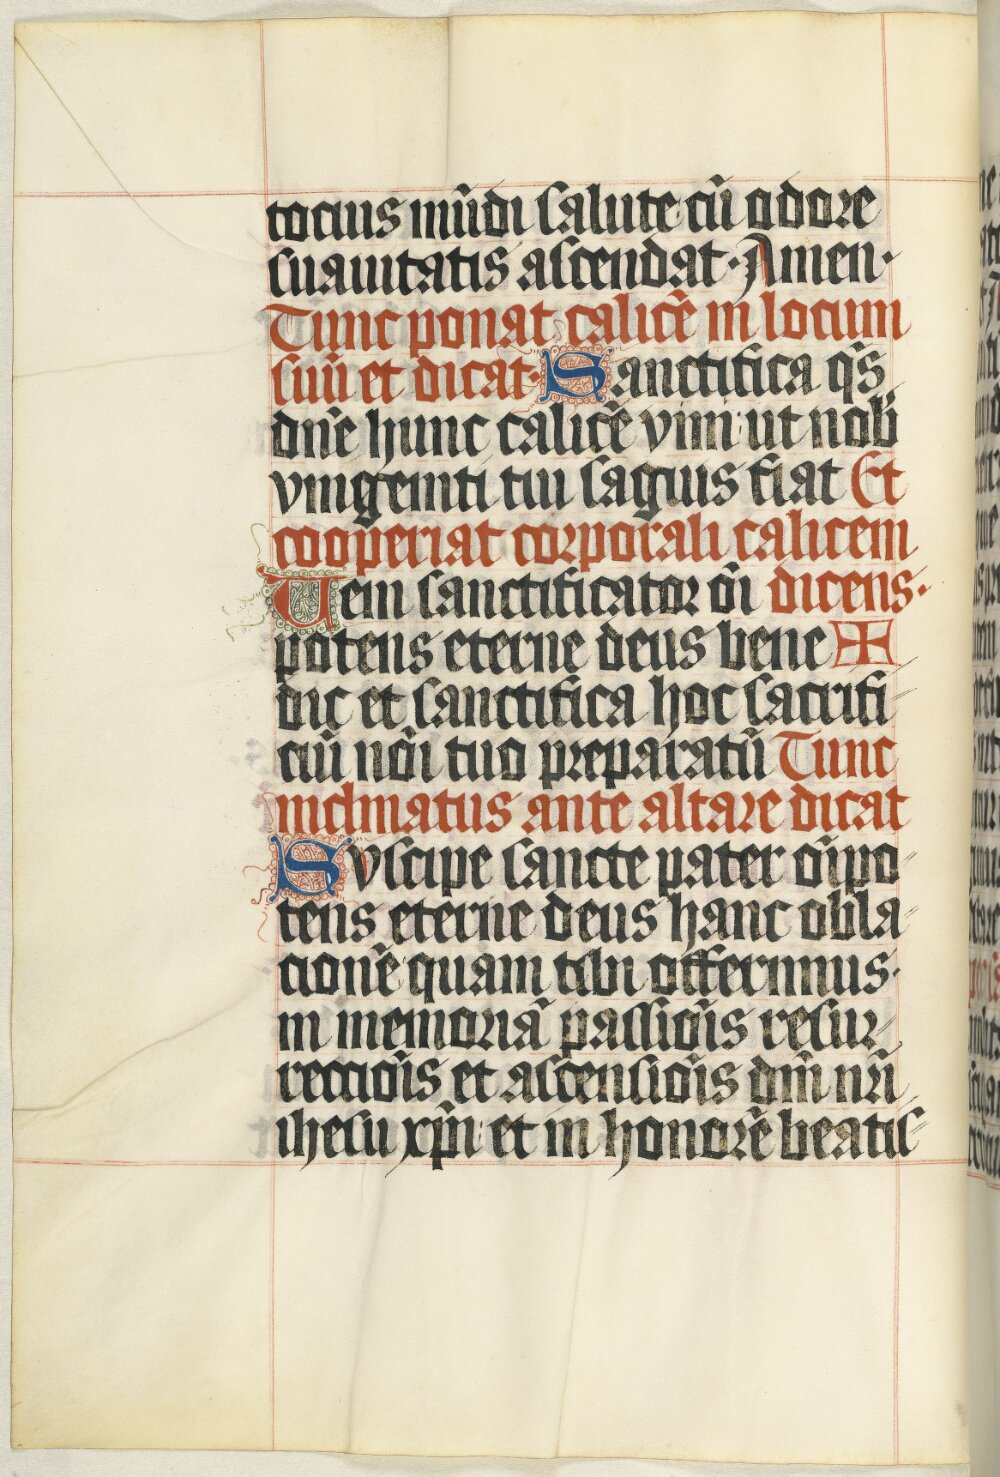 tocius mūdi salute cū odore
suauitatis ascendat · Amen ·
Tunc ponat calicē in locum
suū et dicat · Sanctifica q̄s
dn̄e hunc calicē vini ut nob̄
vnigeniti tui sāguis fiat Et
cooperiat corporali calicem
Uem sanctificator oī dicens ·
potens eterne deus bene ✠
dic et sanctifica hoc sacrifi
ciū noī tuo preparatū Tunc
inclinatus ante altare dicat
Suscipe sancte pater oīpo
tens eterne deus hanc obla
cionē quam tibi offerimus ·
in memoriā passiōis resur
rectiōis et ascensiōis dn̄i nr̄i
ihesu xp̄i et in honorē beatis